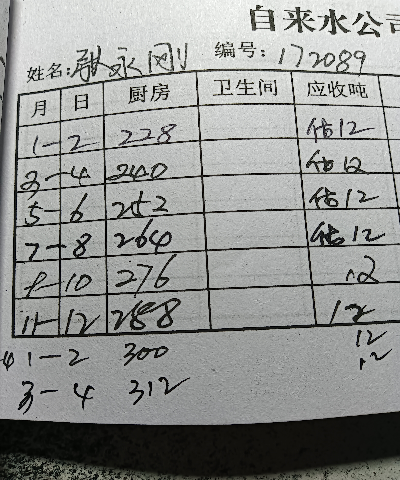 自来水公司
姓名: 永刚 编号: 172089
月 日 厨房 卫生间 应收吨
1-2 228 估12
3-4 240 估12
5-6 252 估12
7-8 264 估12
9-10 276 12
11-12 288 12
1-2 300 12
3-4 312 12